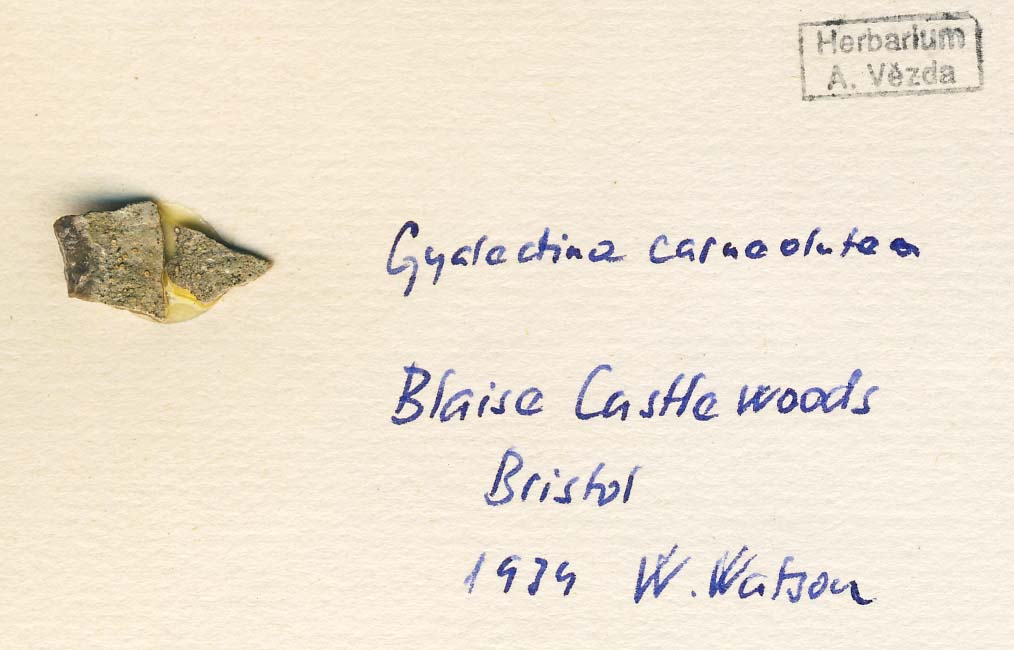 Herbarium
A. Vězda
Gyalectina carneolutea
Blaise Castle woods
Bristol
1939 W. Watson